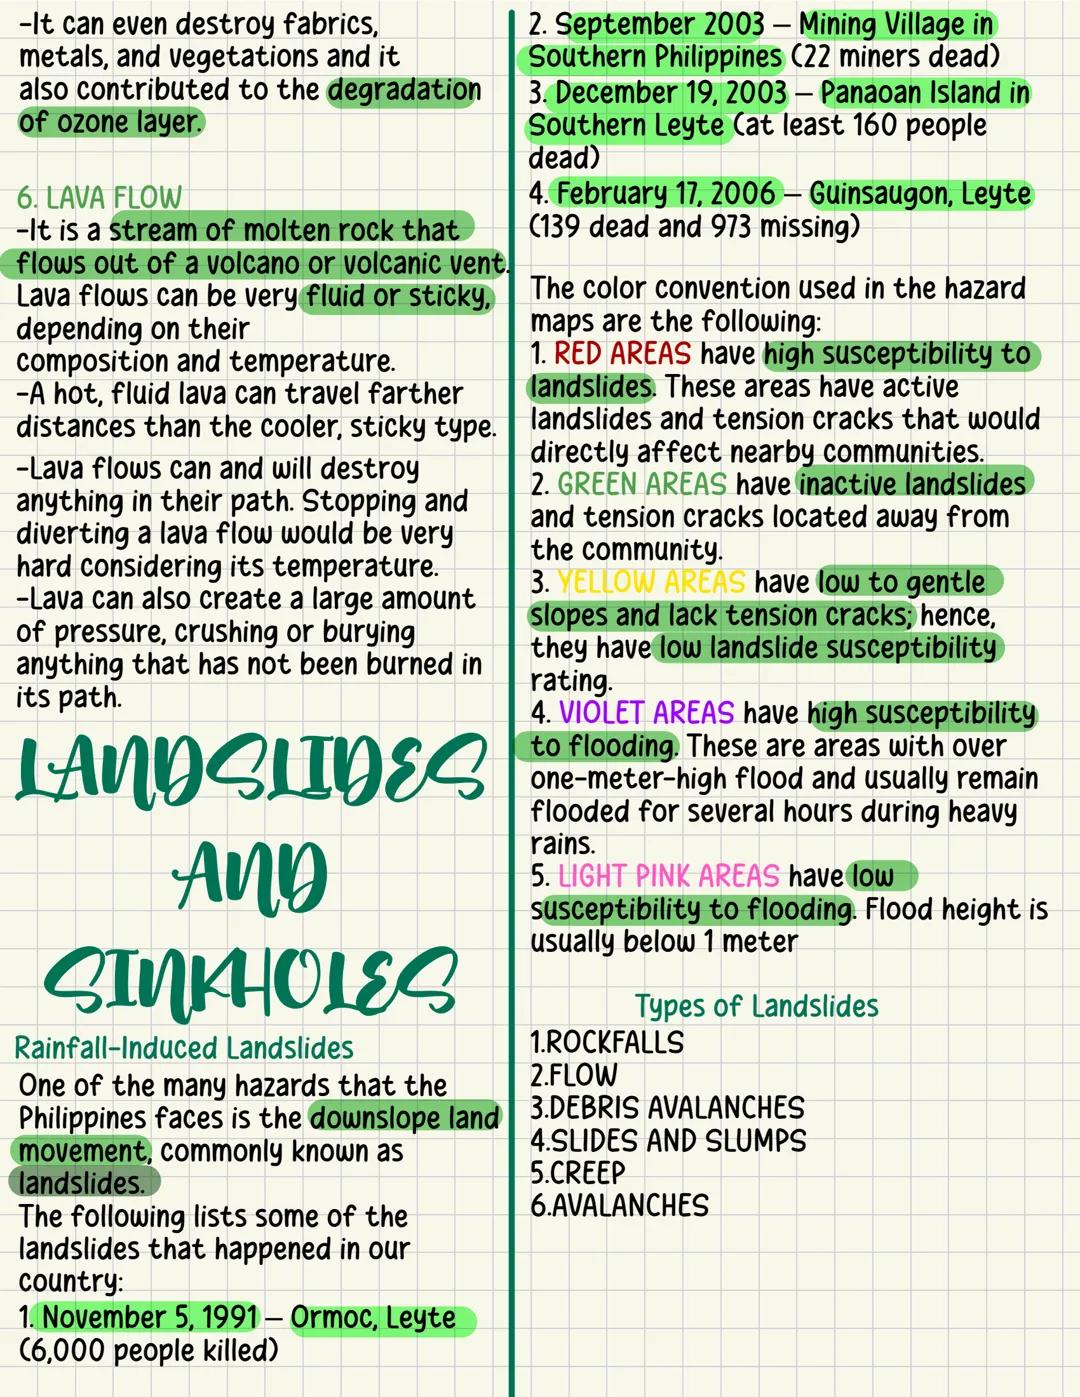 -It can even destroy fabrics,
metals, and vegetations and it
also contributed to the degradation
of ozone layer.
6. LAVA FLOW
-It is a stream of molten rock that
flows out of a volcano or volcanic vent.
Lava flows can be very fluid or sticky,
depending on their
composition and temperature.
-A hot, fluid lava can travel farther
distances than the cooler, sticky type.
-Lava flows can and will destroy
anything in their path. Stopping and
diverting a lava flow would be very
hard considering its temperature.
-Lava can also create a large amount
of pressure, crushing or burying
anything that has not been burned in
its path.
LANDSLIDES
AND
SINKHOLES
Rainfall-Induced Landslides
One of the many hazards that the
Philippines faces is the downslope land
movement, commonly known as
landslides.
The following lists some of the
landslides that happened in our
country:
1. November 5, 1991 – Ormoc, Leyte
(6,000 people killed)
2. September 2003 – Mining Village in
Southern Philippines (22 miners dead)
3. December 19, 2003 – Panaoan Island in
Southern Leyte (at least 160 people
dead)
4. February 17, 2006 – Guinsaugon, Leyte
(139 dead and 973 missing)
The color convention used in the hazard
maps are the following:
1. RED AREAS have high susceptibility to
landslides. These areas have active
landslides and tension cracks that would
directly affect nearby communities.
2. GREEN AREAS have inactive landslides
and tension cracks located away from
the community.
3. YELLOW AREAS have low to gentle
slopes and lack tension cracks; hence,
they have low landslide susceptibility
rating.
4. VIOLET AREAS have high susceptibility
to flooding. These are areas with over
one-meter-high flood and usually remain
flooded for several hours during heavy
rains.
5. LIGHT PINK AREAS have low
susceptibility to flooding. Flood height is
usually below 1 meter
Types of Landslides
1.ROCKFALLS
2.FLOW
3.DEBRIS AVALANCHES
4.SLIDES AND SLUMPS
5.CREEP
6.AVALANCHES